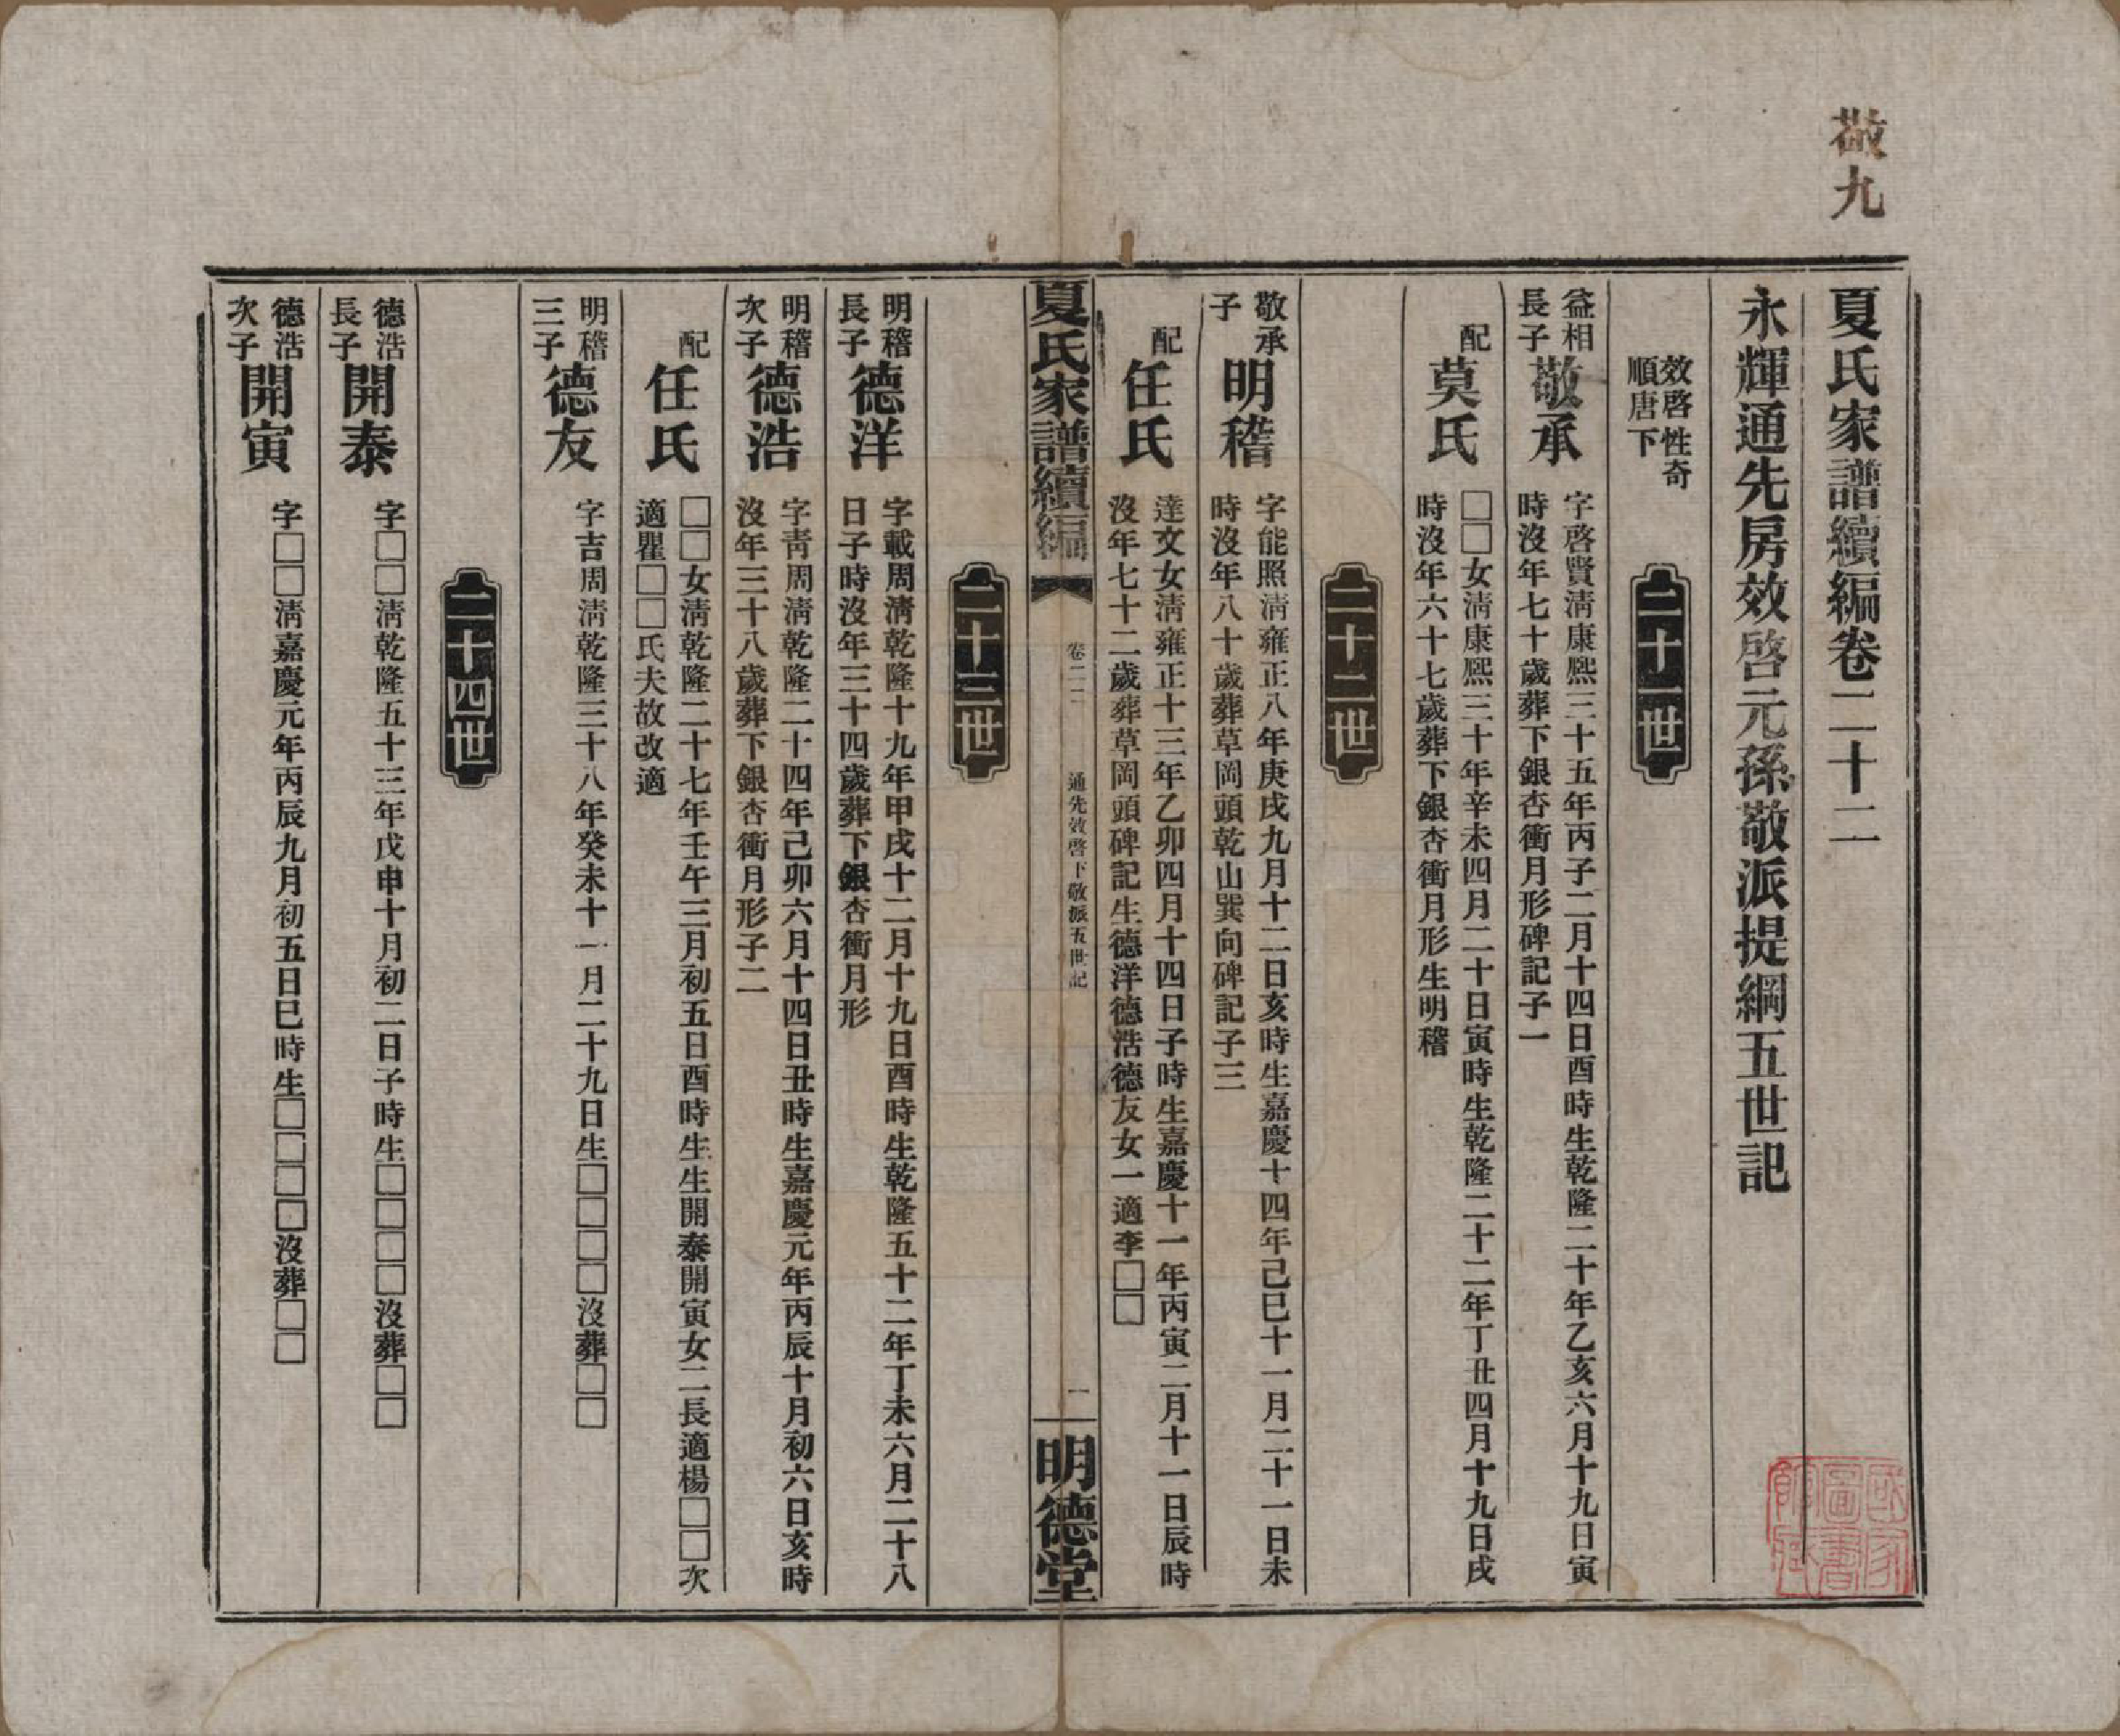 敬九
夏氏家譜續編卷二十二
永輝通先房效啓元孫敬派提綱五世記
效啓性奇
順唐下
二十一世
益相
長子
敬承
字啓賢淸康熙三十五年丙子二月十四日酉時生乾隆二十年乙亥六月十九日寅
時沒年七十歲葬下銀杏衝月形碑記子一
配
莫氏
□□女淸康熙三十年辛未四月二十日寅時生乾隆二十二年丁丑四月十九日戌
時沒年六十七歲葬下銀杏衝月形生明稽
二十二世
敬承
子
明稽
字能照淸雍正八年庚戌九月十二日亥時生嘉慶十四年己巳十一月二十一日未
時沒年八十歲葬草岡頭乾山巽向碑記子三
配
任氏
達文女淸雍正十三年乙卯四月十四日子時生嘉慶十一年丙寅二月十一日辰時
沒年七十二歲葬草岡頭碑記生德洋德浩德友女一適李□□
夏氏家譜續編
卷二二
通先效啓下敬派五世記
一
明德堂
二十三世
明稽
長子
德洋
字載周淸乾隆十九年甲戌十二月十九日酉時生乾隆五十二年丁未六月二十八
日子時沒年三十四歲葬下銀杏衝月形
明稽
次子
德浩
字靑周淸乾隆二十四年己卯六月十四日丑時生嘉慶元年丙辰十月初六日亥時
沒年三十八歲葬下銀杏衝月形子二
配
任氏
□□女淸乾隆二十七年壬午三月初五日酉時生生開泰開寅女二長適楊□□次
適瞿□□氏夫故改適
明稽
三子
德友
字吉周淸乾隆三十八年癸未十一月二十九日生□□□□沒葬□□
二十四世
德浩
長子
開泰
字□□淸乾隆五十三年戊申十月初二日子時生□□□□沒葬□□
德浩
次子
開寅
字□□淸嘉慶元年丙辰九月初五日巳時生□□□□沒葬□□
國家
圖書
館藏